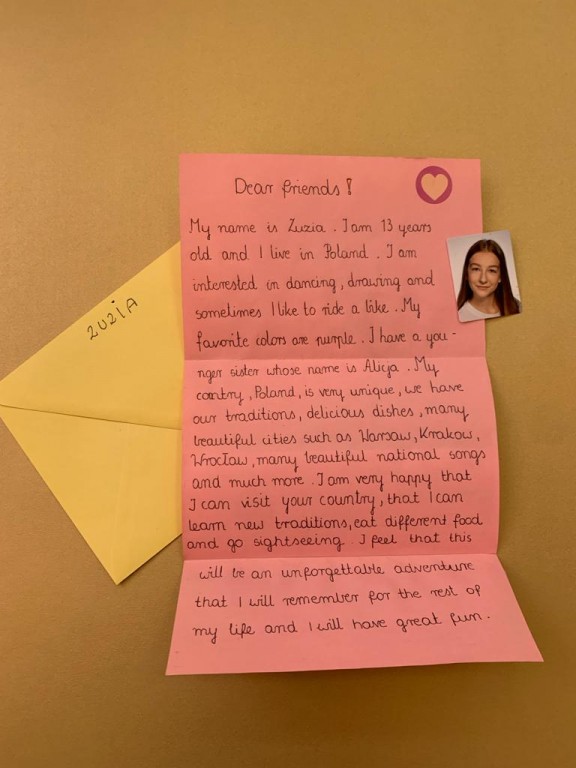 Dear friends!
My name is Zuzia. I am 13 years
old and I live in Poland. I am
interested in dancing, drawing and
sometimes I like to ride a bike. My
favorite colors are purple. I have a you-
nger sister whose name is Alicja. My
country, Poland, is very unique, we have
our traditions, delicious dishes, many
beautiful cities such as Warsaw, Krakow,
Wrocław, many beautiful national songs
and much more. I am very happy that
I can visit your country, that I can
learn new traditions, eat different food
and go sightseeing. I feel that this
will be an unforgettable adventure
that I will remember for the rest of
my life and I will have great fun.
ZUZIA